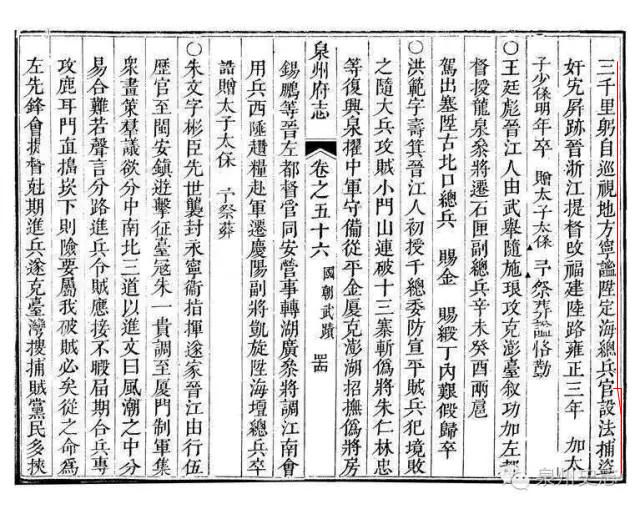 三千里躬自巡視地方寧謐陞定海總兵官設法捕盜
奸宄屏跡晉浙江提督改福建陸路雍正三年 加太
子少保明年卒 贈太子太保 予祭葬諡恪勤
○王廷彪晉江人由武舉隨施琅攻克澎臺叙功加左都
督授龍泉叅將遷石匣副總兵辛未癸酉兩扈
駕出塞陞古北口總兵 賜金 賜緞丁內艱假歸卒
○洪範字壽箕晉江人初授千總委防宣平賊兵犯境敗
之隨大兵攻賊小門山連破十三寨斬僞將朱仁林忠
等復興泉擢中軍守備從平金厦克澎湖招撫僞將房
錫鵬等晉左都督官同安營事轉湖廣叅將調江南會
泉州府志 卷之五十六 國朝武蹟 四
用兵西陲趲糧赴軍遷慶陽副將凱旋陞海壇總兵卒
誥贈太子太保 予祭葬
○朱文字彬臣先世襲封永寧衛指揮遂家晉江由行伍
歷官至閩安鎮遊擊征臺冦朱一貴調至厦門制軍集
衆畫策羣議欲分中南北三道以進文曰風潮之中分
易合難若聲言分路進兵令賊應接不暇屆期合兵專
攻鹿耳門直搗崁下則險要屬我破賊必矣從之命爲
左先鋒會提督尅期進兵遂克臺灣搜捕賊黨民多挾
泉州史志